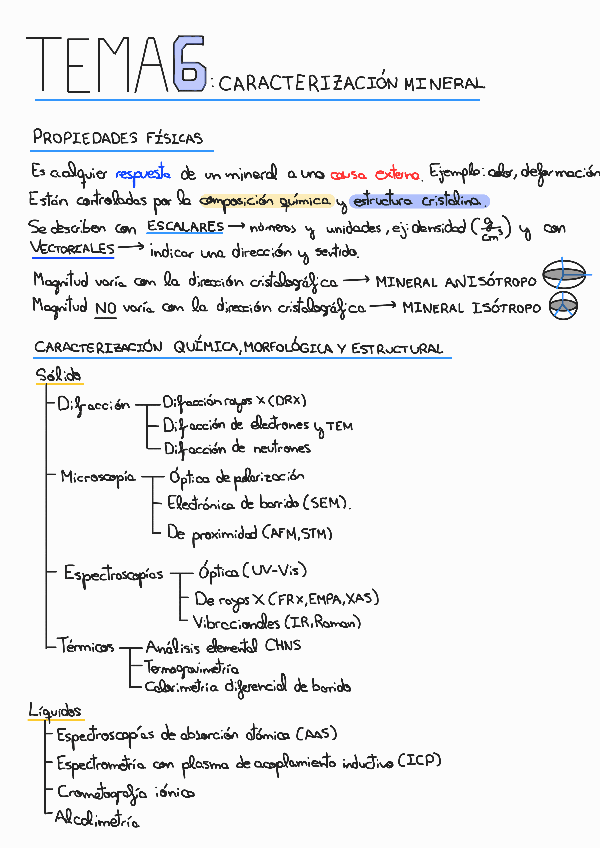 TEMA 6: CARACTERIZACIÓN MINERAL
PROPIEDADES FÍSICAS
Es cualquier respuesta de un mineral a una causa externa. Ejemplo: color, deformación
Están controladas por la composición química y estructura cristalina.
Se describen con ESCALARES → números y unidades, ej: densidad (g/cm³) y con
VECTORIALES → indicar una dirección y sentido.
Magnitud varía con la dirección cristalográfica → MINERAL ANISÓTROPO
Magnitud NO varía con la dirección cristalográfica → MINERAL ISÓTROPO
CARACTERIZACIÓN QUÍMICA, MORFOLÓGICA Y ESTRUCTURAL
Sólido
Difracción
Difracción rayos X (DRX)
Difracción de electrones y TEM
Difracción de neutrones
Microscopía
Óptica de polarización
Electrónica de barrido (SEM).
De proximidad (AFM, STM)
Espectroscopías
Óptica (UV-Vis)
De rayos X (FRX, EMPA, XAS)
Vibracionales (IR, Raman)
Térmicos
Análisis elemental CHNS
Termogravimetría
Calorimetría diferencial de barrido
Líquidos
Espectroscopías de absorción atómica (AAS)
Espectrometría con plasma de acoplamiento inductivo (ICP)
Cromatografía iónica
Alcalimetría